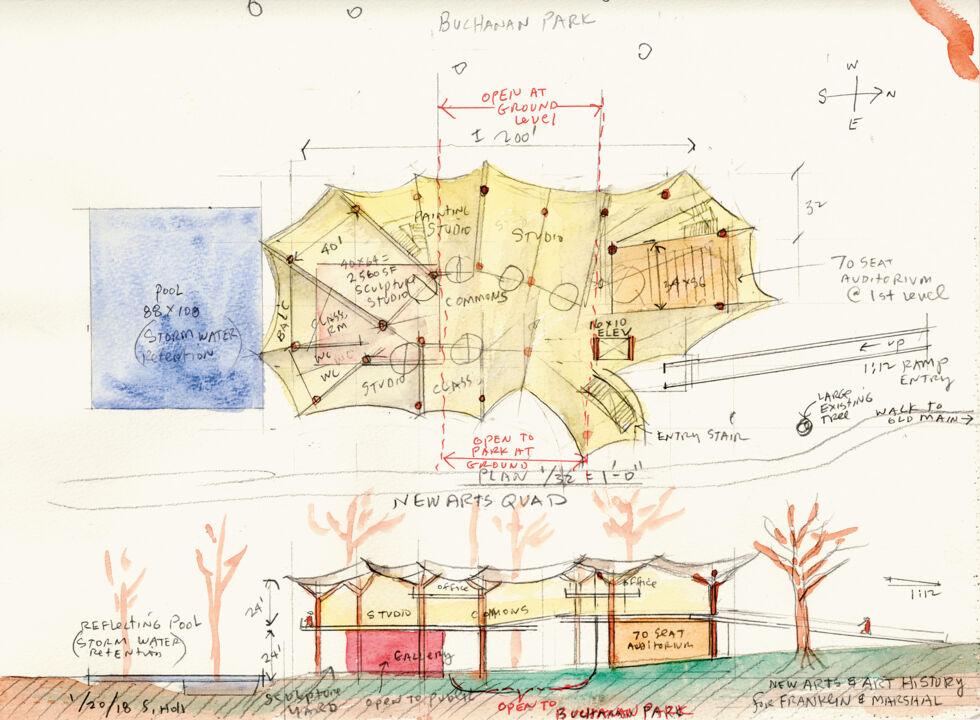 BUCHANAN PARK
W
S N
E
OPEN AT
GROUND
Level
200'
32
PAINTING
STUDIO
STUDIO
40'
40X64=
2560SF
SCULPTURE
STUDIO
34X36
70 SEAT
AUDITORIUM
@ 1st Level
POOL
88 X 100
(STORM WATER
Retention)
BALC
COMMONS
CLASS
RM
WC
WC
WC
STUDIO
CLASS
6X10
ELEV
← UP
1:12 RAMP
ENTRY
LARGE
EXISTING
TREE
WALK TO
OLD MAIN
ENTRY STAIR
OPEN TO
PARK AT
GROUND
PLAN 1/32 = 1'-0"
NEW ARTS QUAD
OFFICE
OFFICE
24'
STUDIO
COMMONS
1:12
REFLECTING POOL
(STORM WATER
Retention)
24'
GALLERY
70 SEAT
AUDITORIUM
1/20/18 S. Holl
SCULPTURE
YARD
OPEN TO PUBLIC
OPEN TO
BUCHANAN PARK
NEW ARTS & ART HISTORY
for FRANKLIN & MARSHAL